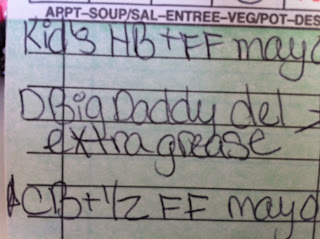 APPT-SOUP/SAL-ENTREE-VEG/POT-DES
Kid's HB+FF mayo
DBig Daddy del
extra grease
CB+1/2 FF mayo